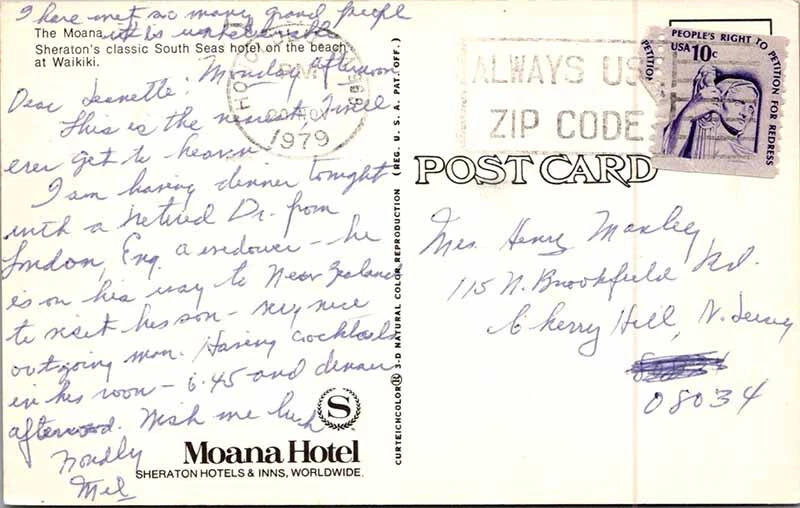 I have met so many grand people
it is unbelievable
The Moana
Sheraton's classic South Seas hotel on the beach
at Waikiki.
Monday afternoon
Dear Jeanette:
This is the nearest I will
ever get to heaven
I am having dinner tonight
with a retired Dr. from
London, Eng. a widower - he
is on his way to New Zealand
to visit his son - very nice
outgoing man. Having cocktails
in his room - 6.45 and dinner
afterward. Wish me luck
Fondly
Mel
S
Moana Hotel
SHERATON HOTELS & INNS, WORLDWIDE.
CURTEICHCOLOR® 3-D NATURAL COLOR REPRODUCTION (REG. U. S. A. PAT. OFF.)
PM
20 NOV
1979
ALWAYS USE
ZIP CODE
PEOPLE'S RIGHT TO PETITION FOR REDRESS
USA 10c
PETITION
POST CARD
Mrs. Henry Manley
115 N. Brookfield Rd.
Cherry Hill, N. Jersey
08034